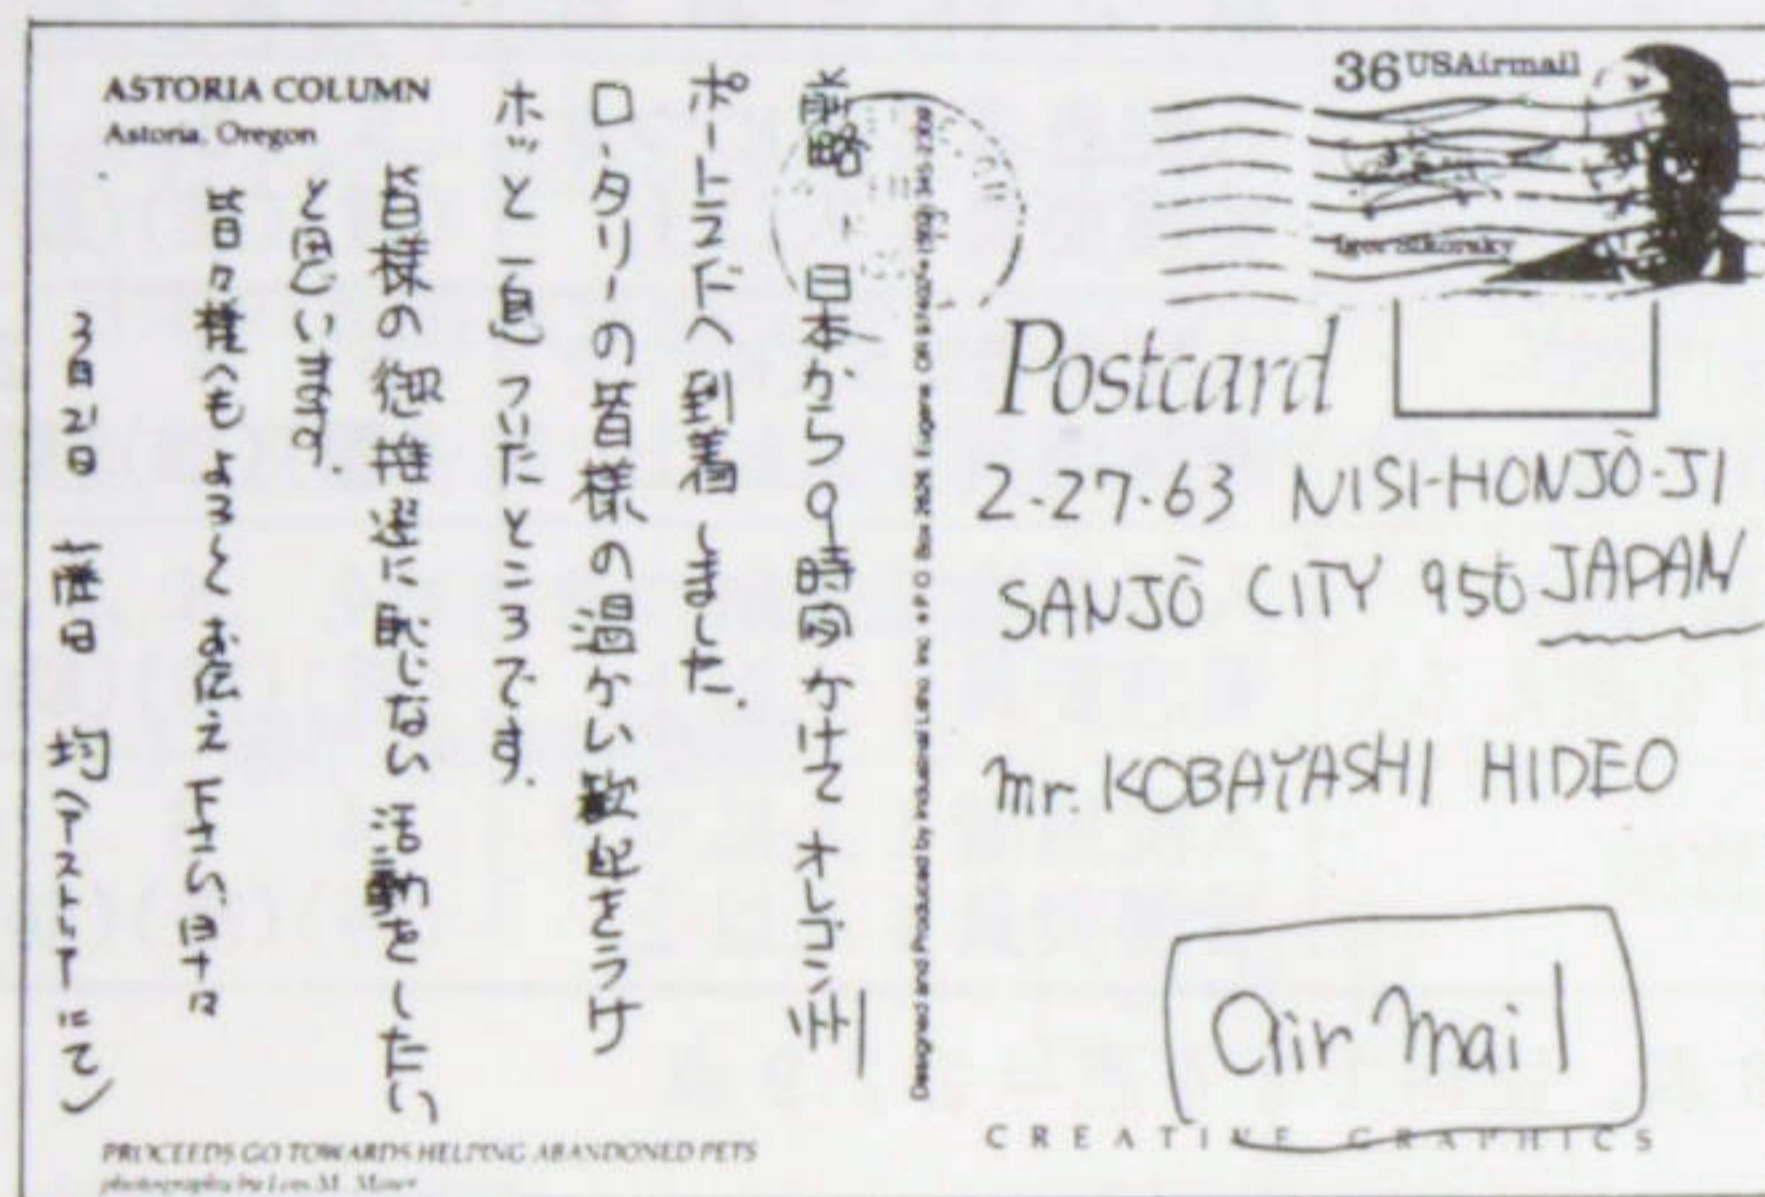 ASTORIA COLUMN
Astoria, Oregon
前略 日本から9時間かけてオレゴン州
ポートランドへ到着しました.
ロータリーの皆様の温かい歓迎をうけ
ホッと一息ついたところです.
皆様の御推薦に恥じない活動をしたい
と思います.
皆々様へもよろしくお伝え下さい 草々
3月21日 均(アストリアにて)
PROCEEDS GO TOWARDS HELPING ABANDONED PETS
photography by
Designed and Produced by Industrial Litho Inc. • P.O. Box 2626 Eugene OR 97402 • (503) 345-2309
36 USAirmail
Igor Sikorsky
Postcard
2-27-63 NISI-HONJŌ-JI
SANJŌ CITY 955 JAPAN
Mr. KOBAYASHI HIDEO
Air Mail
CREATIVE GRAPHICS